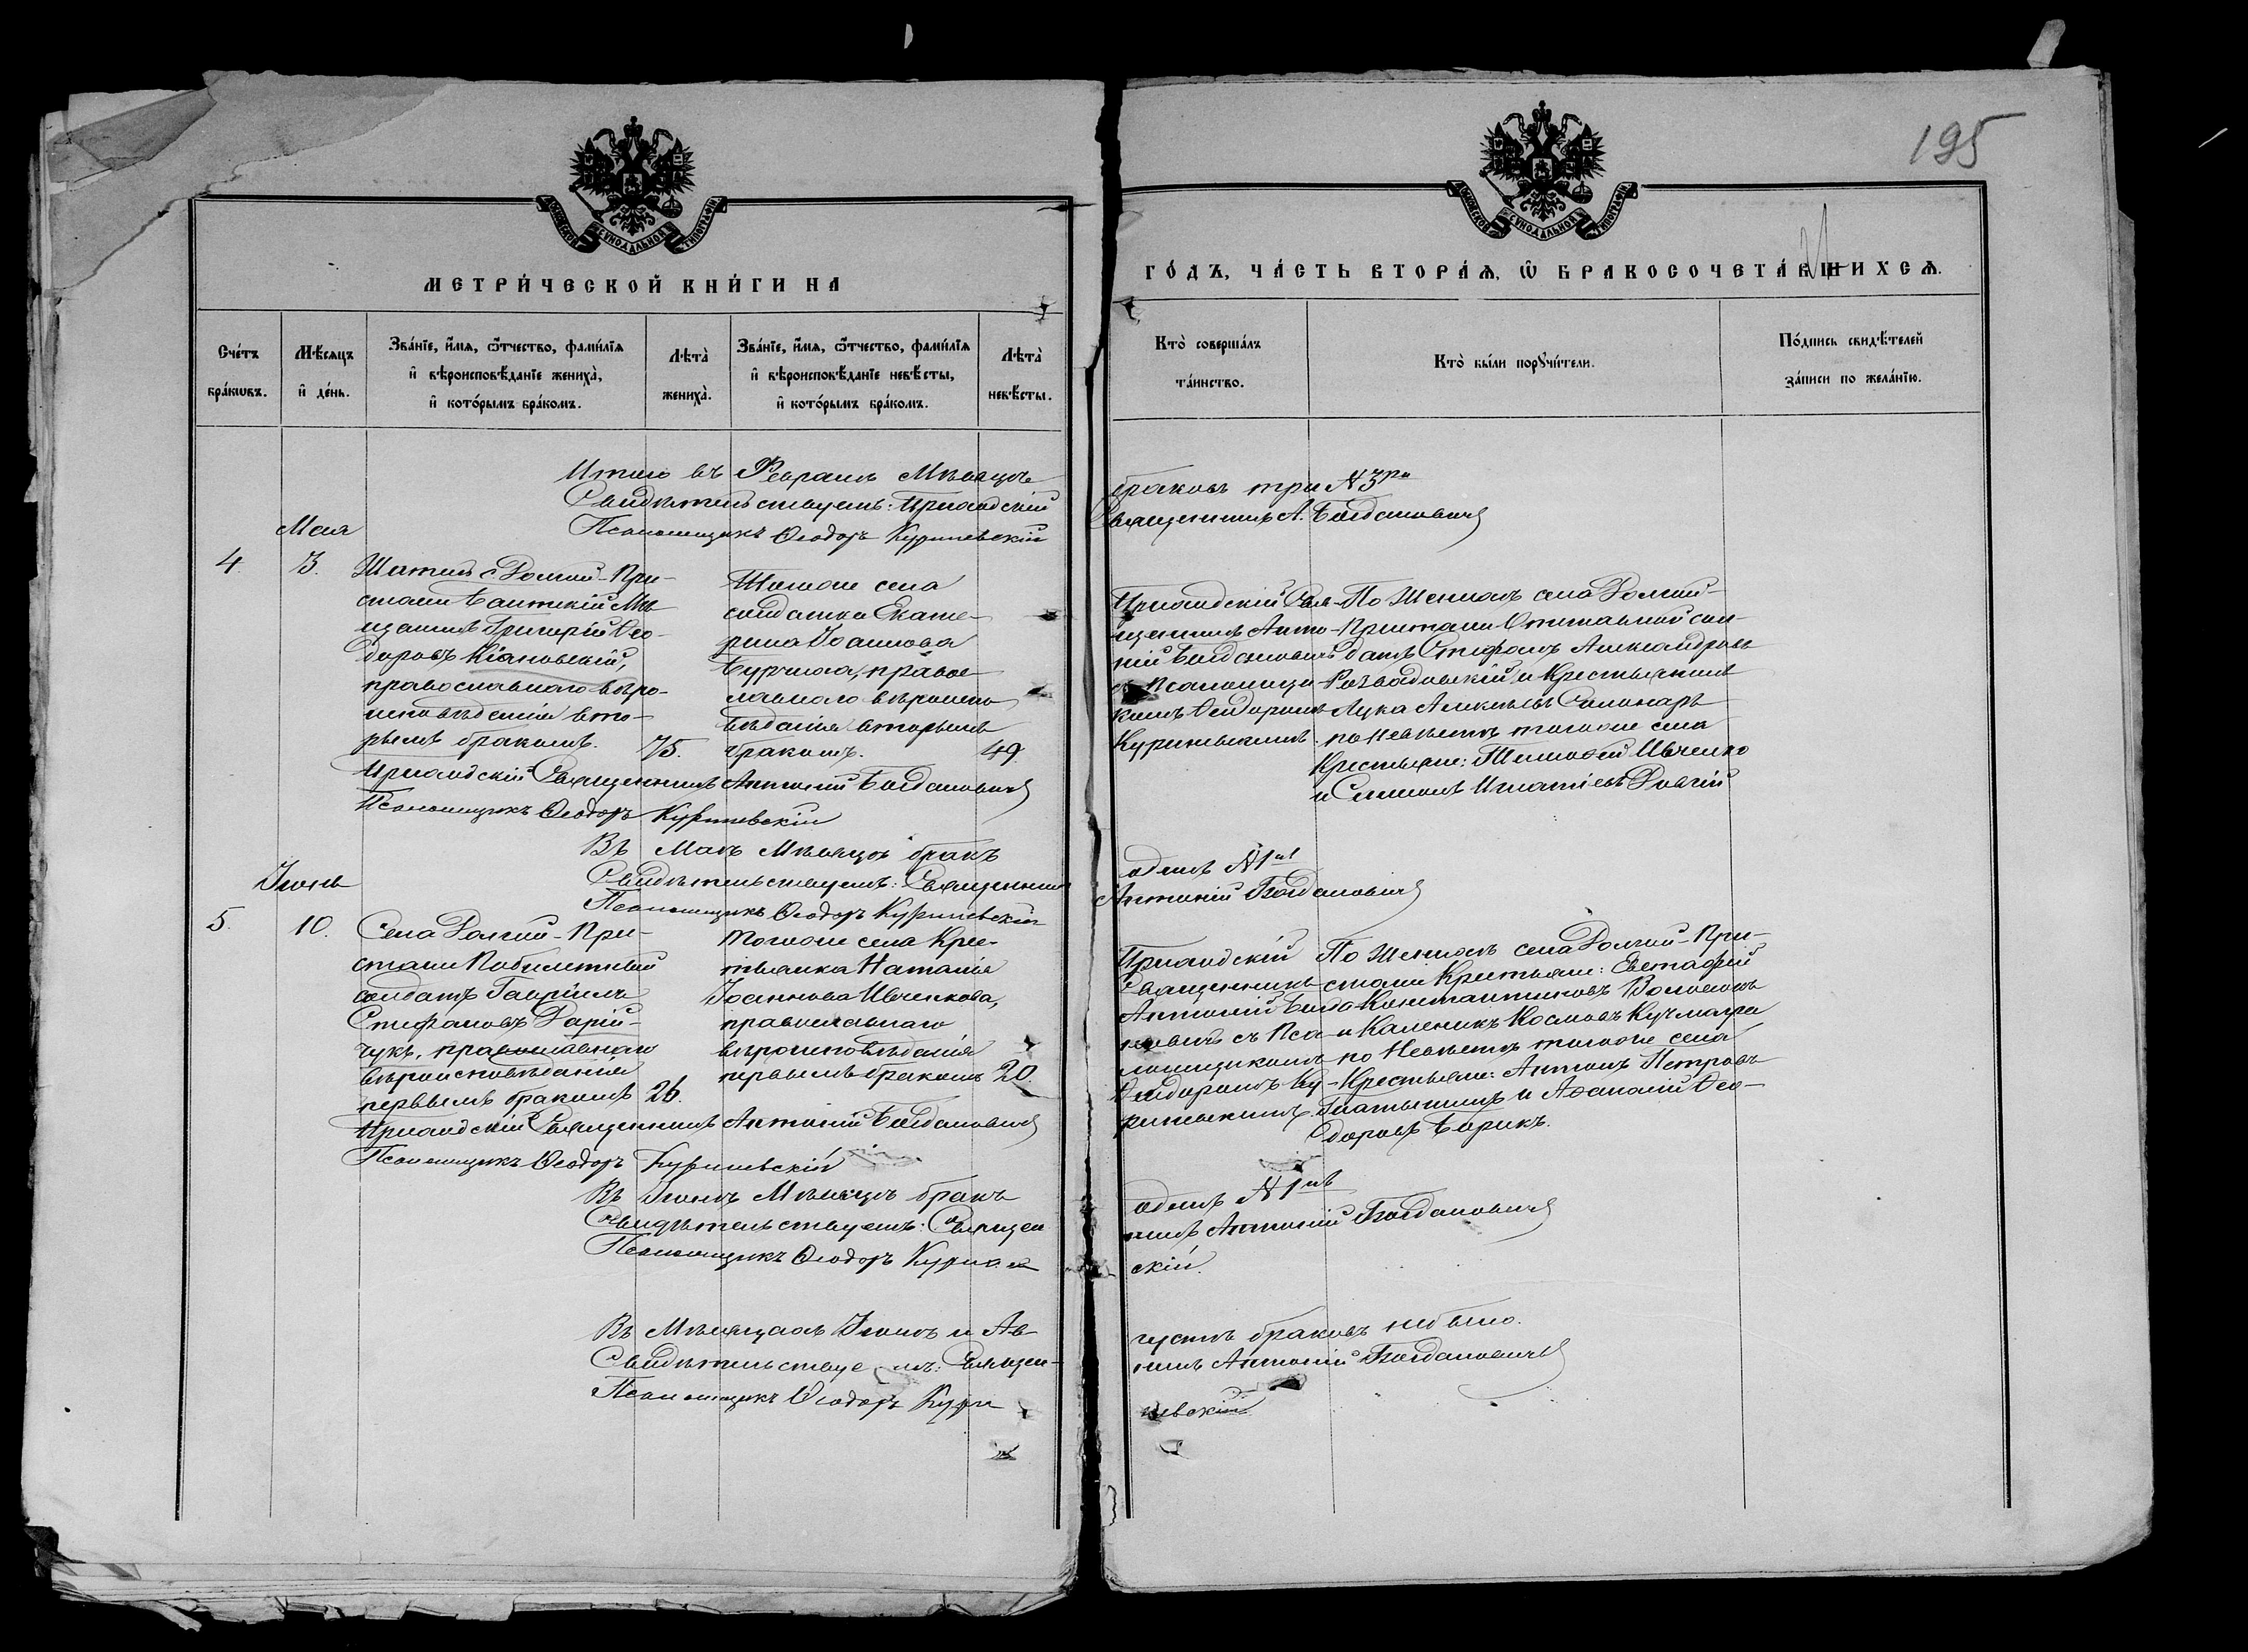 195
МЕТРИ́ЧЕСКОЙ КНИ́ГИ НА
ГО́ДЪ, ЧА́СТЬ ВТОРА́Ѧ, Ѽ БРАКОСОЧЕТА́ВШИХСѦ.
Сче́тъ бра́кѡвъ.
Мѣ́сѧцъ и҆ де́нь.
Зва́нїе, и҆́мѧ, ѻ҆́тчество, фамѝлїѧ
и҆ вѣроисповѣ́данїе жениха̀,
и҆ кото́рымъ бра́комъ.
Лѣта̀ жениха̀.
Зва́нїе, и҆́мѧ, ѻ҆́тчество, фамѝлїѧ
и҆ вѣроисповѣ́данїе невѣ́сты,
и҆ кото́рымъ бра́комъ.
Лѣта̀ невѣ́сты.
Кто̀ соверша́лъ
та́инство.
Кто̀ бы́ли порꙋчи́тели.
По́дпись свидѣ́телей
за́писи по жела́нїю.
Итого въ Февралѣ Мѣсяцѣ
браковъ три № 3ри
Свидѣтельствуемъ: Приходскій
Священникъ А. Богдановичъ
Псаломщикъ Ѳеодоръ Куриневскій
Мая
4.
3.
Жители с. Долгой-При-
стани Балтскій Мѣ-
щанинъ Григорій Ѳео-
доровъ Кіановскій,
православнаго вѣро-
исповѣданія вто-
рымъ бракомъ.
75.
Тогоже села
солдатка Екате-
рина Іоаннова
Бурчила, правос
лавнаго вѣроиспо
вѣданія вторымъ
бракомъ.
49
Приходскій Свя-
щенникъ Анто-
ній Богдановичъ
съ псаломщи-
комъ Ѳеодоромъ
Куриневскимъ.
По Женихѣ села Долгой-
Пристани Отставной сол-
датъ Стефанъ Александровъ
Розвадовскій и Крестьянинъ
Лука Алексѣевъ
по Невѣстѣ тогоже села
Крестьяне: Тимофей Ивченко
и Симеонъ Игнатіевъ Довгій
Приходскій Священникъ Антоній Богдановичъ
Псаломщикъ Ѳеодоръ Куриневскій
Въ Маѣ Мѣсяцѣ бракъ
одинъ № 1нъ
Свидѣтельствуемъ: Священникъ
Антоній Богдановичъ
Псаломщикъ Ѳеодоръ Куриневскій
Іюнь
5.
10.
Села Долгой-При-
стани безсрочный
солдатъ Гавріилъ
Стефановъ Дарій-
чукъ, православнаго
вѣроисповѣданія
первымъ бракомъ
26.
Тогоже села Крес-
тьянка Наталія
Іоаннова Ивченкова,
православнаго
вѣроисповѣданія
первымъ бракомъ
20.
Приходскій
Священникъ
Антоній Богда
новичъ съ Пса-
ломщикомъ
Ѳеодоромъ Ку-
риневскимъ.
По Женихѣ села Долгой-При-
стани Крестьяне: Евстафій
Константиновъ Волошинъ
и Каленикъ Космовъ Кучмагра
по Невѣстѣ тогоже села
Крестьяне: Антонъ Петровъ
и Аѳанасій Ѳео-
доровъ Борикъ.
Приходскій Священникъ Антоній Богдановичъ
Псаломщикъ Ѳеодоръ Куриневскій
Въ Іюнѣ Мѣсяцѣ бракъ
одинъ № 1нъ
Свидѣтельствуемъ: Священ
никъ Антоній Богдановичъ
Псаломщикъ Ѳеодоръ Курине
скій.
Въ Мѣсяцахъ Іюлѣ и Ав-
густѣ браковъ небыло.
Свидѣтельствуемъ: Священ-
никъ Антоній Богдановичъ
Псаломщикъ Ѳеодоръ Кури
невскій